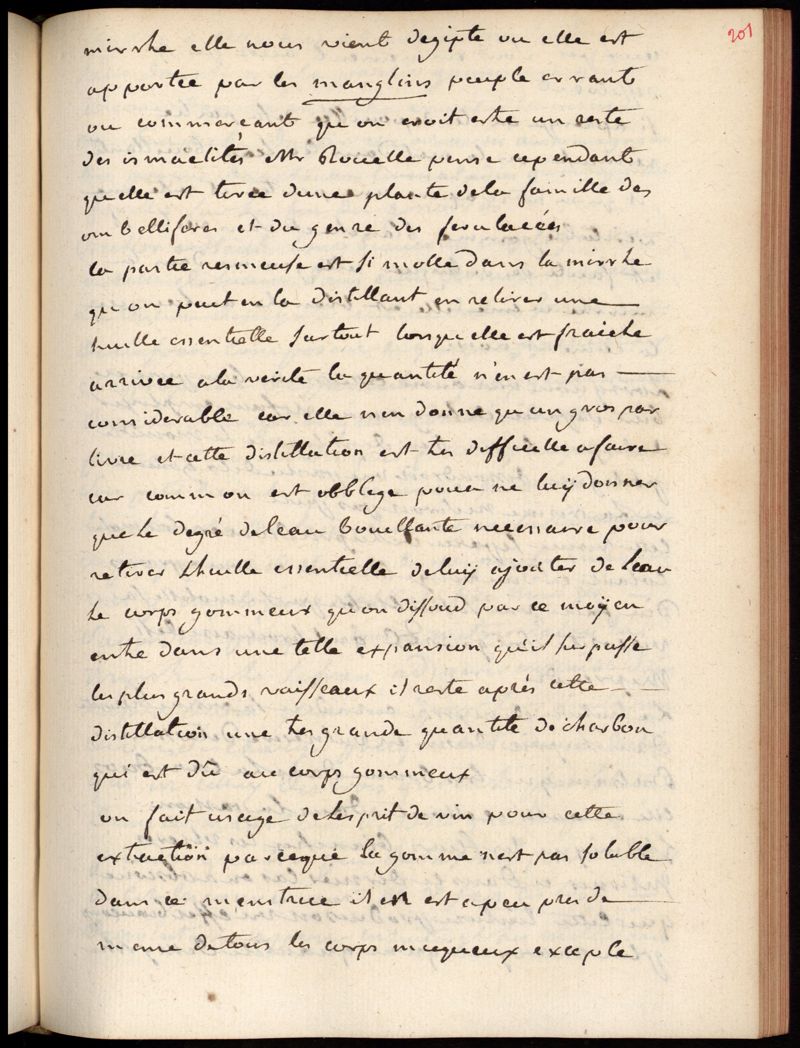 201
mirrhe elle nous vient degipte ou elle est
apportée par les manglins peuple errant
ou commercant qu on croit estre un reste
des ismaelites Mr Rouelle pense cependant
quelle est tirée dune plante dela famille des
ombelliferes et du genre des ferulacées
la partie resineuse est si molle dans la mirrhe
qu on peut en la distillant en retirer une
huille essentielle surtout lorsquelle est fraiche
arrivée ala verité la quantité n'en est pas
considerable car elle nen donne qu un gros par
livre et cette distillation est tres difficelle afaire
car comm on est obblegé pour ne luÿ donner
que le degré deleau bouellante necessaire pour
retirer Lhuille essentielle deluÿ ajouter de leau
le corps gommeux quon dissoud par ce moÿen
entre dans une telle expansion qu'il surpasse
les plus grands vaisseaux il reste aprés cette
distillation une tres grande quantité de charbon
qui est dû au corps gommeux
on fait usage de lesprit de vin pour cette
extraction parceque la gomme n'est pas soluble
dans ce menstrue il en est apeu prés de
meme de tous les corps muqueux excepté